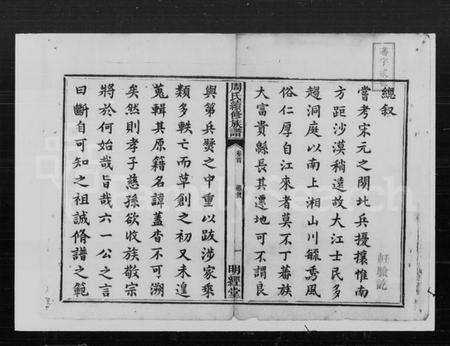 總叙
嘗考宋元之間北兵擾攘惟南
方距沙漠稍遠故大江士民多
趨洞庭以南上湘山川毓秀風
俗仁厚自江來者莫不丁蕃族
大富貴縣長其遷地可不謂良
周氏續修族譜
卷首
總叙
一
明經堂
與第兵燹之中重以跋涉家乘
類多軼亡而草創之初又未遑
蒐輯其原籍名諱蓋杳不可溯
矣然則孝子慈孫欲收族敬宗
將於何始哉旨哉六一公之言
曰斷自可知之祖誠脩譜之範